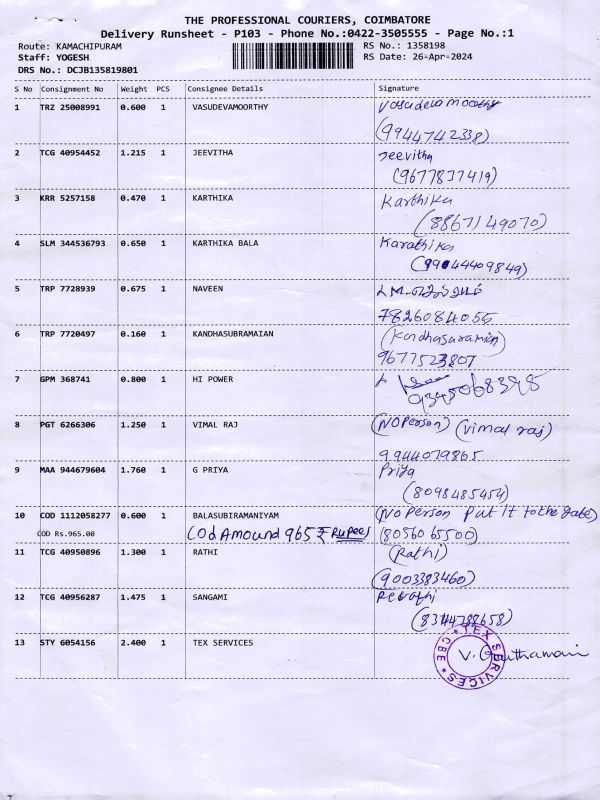 THE PROFESSIONAL COURIERS, COIMBATORE
Delivery Runsheet - P103 - Phone No.:0422-3505555 - Page No.:1
Route: KAMACHIPURAM RS No.: 1358198
Staff: YOGESH RS Date: 26-Apr-2024
DRS No.: DCJB135819801
S No Consignment No Weight PCS Consignee Details Signature
1 TRZ 25008991 0.600 1 VASUDEVAMOORTHY Vasudeva moorthy
(9944742338)
2 TCG 40954452 1.215 1 JEEVITHA Jeevitha
(9677837419)
3 KRR 5257158 0.470 1 KARTHIKA Karthika
(8867149070)
4 SLM 344536793 0.650 1 KARTHIKA BALA Karathika
5 TRP 7728939 0.675 1 NAVEEN
7826084055
6 TRP 7720497 0.160 1 KANDHASUBRAMAIAN (Kandhasuramian)
9677523807
7 GPM 368741 0.800 1 HI POWER
9345068398
8 PGT 6266306 1.250 1 VIMAL RAJ (NO Person) (vimal raj)
9944079865
9 MAA 944679604 1.760 1 G PRIYA Priya
(8098485454)
10 COD 1112058277 0.600 1 BALASUBIRAMANIYAM (No person put it to the gate)
COD Rs.965.00 COd Amound 965 ₹ Rupees (8056065500)
11 TCG 40950896 1.300 1 RATHI (Rathi)
(9003383460)
12 TCG 40956287 1.475 1 SANGAMI Revathi
(8344788658)
13 STY 6054156 2.400 1 TEX SERVICES V. Gouthamani
TEX SERVICES
CBE